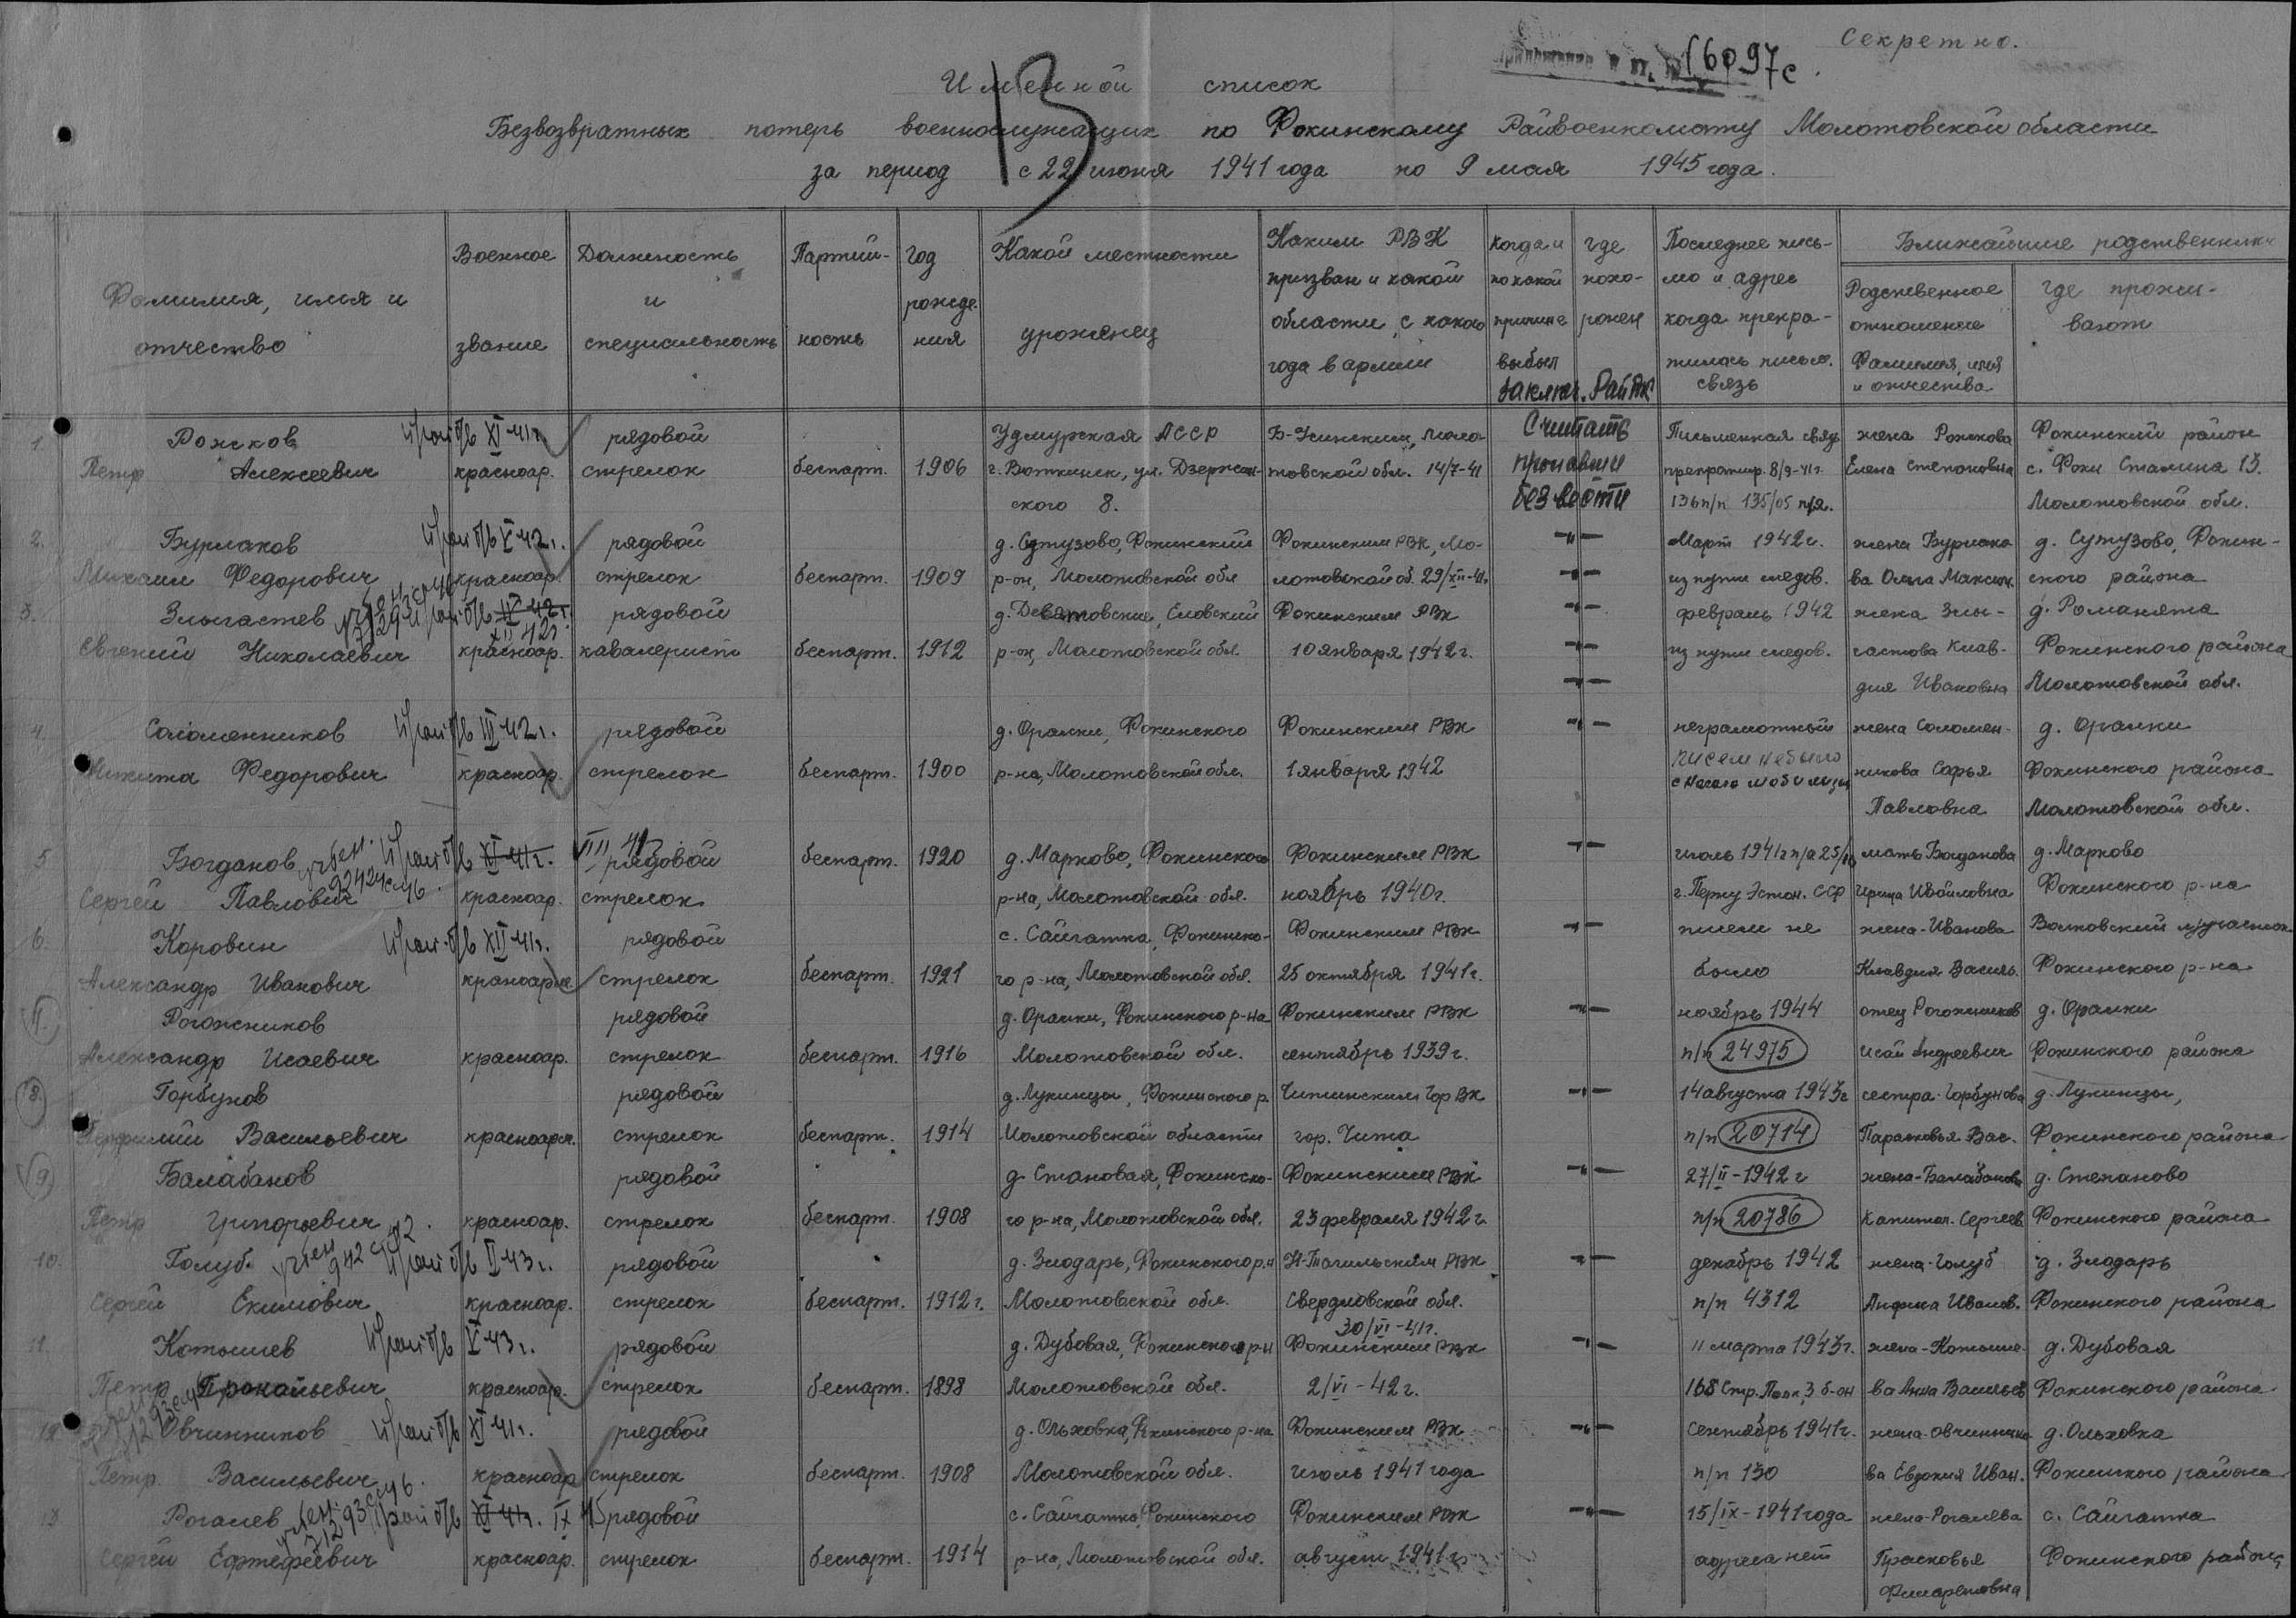 Секретно.
16097с
Именной список
13
Безвозвратных потерь военнослужащих по Фокинскому Райвоенкомату Молотовской области
за период с 22 июня 1941 года по 9 мая 1945 года.
Фамилия, имя и отчество
Военное звание
Должность и специальность
Партийность
Год рождения
Какой местности уроженец
Каким РВК призван и какой области, с какого года в армии
Когда и по какой причине выбыл
где похоронен
Последнее письмо и адрес когда прекратилась письм. связь
Ближайшие родственники
Родственное отношение Фамилия, имя и отчества
где проживают
Заключ. РайВК
1. Рожков XI 41г. рядовой Удмурская АССР Б-Усинским, Моло- Считать Письменная связь жена Рожкова Фокинский район
Петр Алексеевич красноар. стрелок беспарт. 1906 г. Воткинск, ул. Дзержин- товской обл. 14/7-41 пропавшим прекратир. 8/9-41г. Елена Степановна с. Фоки Сталина 13.
ского 8. без вести 136 п/п 135/05 п/я. Молотовской обл.
2. Бурлаков V 42г. рядовой д. Сутузово, Фокинский Фокинским РВК, Мо- -"- Март 1942г. жена Бурлако- д. Сутузово, Фокин-
Михаил Федорович красноар. стрелок беспарт. 1909 р-он, Молотовской обл лотовской об. 29/XII-41г -"- из пути следов. ва Ольга Максим. ского района
3. Злыгастев IV 42г. рядовой д. Девятовские, Еловский Фокинским РВК -"- февраль 1942 жена Злы- д. Романята
XII 42г.
Евгений Николаевич красноар. кавалерист беспарт. 1912 р-он, Молотовской обл. 10 января 1942г. -"- из пути следов. гастова Клав- Фокинского района
-"- дия Ивановна Молотовской обл.
4. Соломенников III 42г. рядовой д. Оралки, Фокинского Фокинским РВК -"- неграмотный жена Соломен- д. Оралки
Никита Федорович красноар. стрелок беспарт. 1900 р-на, Молотовской обл. 1 января 1942 писем не было никова Софья Фокинского района
с начало мобилизац Павловна Молотовской обл.
5 Богданов XI 41г. VIII 41 рядовой беспарт. 1920 д. Марково, Фокинского Фокинским РВК -"- июль 1941г п/я 25/10 мать Богданова д. Марково
Сергей Павлович красноар. стрелок р-на, Молотовской обл. ноябрь 1940г. г. Пярну Эстон. ССР Фокинского р-на
6. Коровин XII 41г. рядовой с. Сайгатка, Фокинско- Фокинским РВК -"- писем не жена-Иванова Волковский
Александр Иванович красноарм. стрелок беспарт. 1921 го р-на, Молотовской обл. 25 октября 1941г. было Клавдия Василь. Фокинского р-на
7. Рогожников рядовой д. Оралки, Фокинского р-на Фокинским РВК -"- ноябрь 1944 отец Рогожников д. Оралки
Александр Исаевич красноар. стрелок беспарт. 1916 Молотовской обл. сентябрь 1939г. п/п 24975 Исай Андреевич Фокинского района
8. Горбунов рядовой д. Лукинцы, Фокинского р. Читинским Гор ВК -"- 14 августа 1943г сестра-Горбунова д. Лукинцы,
Перфилий Васильевич красноарм. стрелок беспарт. 1914 Молотовской области гор. Чита п/п 20714 Парасковья Вас. Фокинского района
9. Балабанов рядовой д. Становая, Фокинско- Фокинским РВК -"- 27/II-1942г жена-Балабанова д. Степаново
Петр Григорьевич красноар. стрелок беспарт. 1908 го р-на, Молотовской обл. 23 февраля 1942г. п/п 20786 Капитал. Сергеев. Фокинского района
10. Голуб II 43г. рядовой д. Злодарь, Фокинского р-н Н-Тагильским РВК -"- декабрь 1942 жена-Голуб д. Злодарь
Сергей Екимович красноар. стрелок беспарт. 1912г. Молотовской обл. Свердловской обл. п/п 4312 Анфиса Иванов. Фокинского района
30/VI-41г.
11. Котышев V 43г. рядовой д. Дубовая, Фокинского р-н Фокинским РВК -"- 11 марта 1943г. жена-Котыше- д. Дубовая
Петр Прокопьевич красноар. стрелок беспарт. 1898 Молотовской обл. 2/VI-42г. 168 Стр. Полк, 3 б-он ва Анна Васильев Фокинского района
12 Овчинников XI 41г. рядовой д. Ольховка, Фокинского р-на Фокинским РВК -"- Сентябрь 1941г. жена-Овчинник- д. Ольховка
Петр Васильевич красноар. стрелок беспарт. 1908 Молотовской обл. июль 1941 года п/п 130 ва Евдокия Иван. Фокинского района
13 Рогалев XI 41г. IX 45 рядовой с. Сайгатка, Фокинского Фокинским РВК -"- 15/IX-1941 года жена-Рогалева с. Сайгатка
Сергей красноар. стрелок беспарт. 1914 р-на, Молотовской обл. август 1941г. адреса нет Прасковья Фокинского района